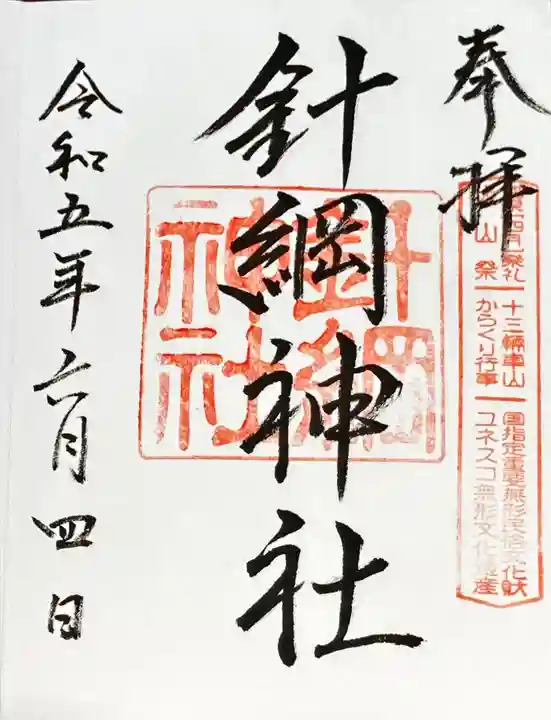 奉拝
山祭
十三輛車山
からくり行事
国指定重要無形民俗文化財
ユネスコ無形文化遺産
針綱神社
針綱神社
令和五年六月四日